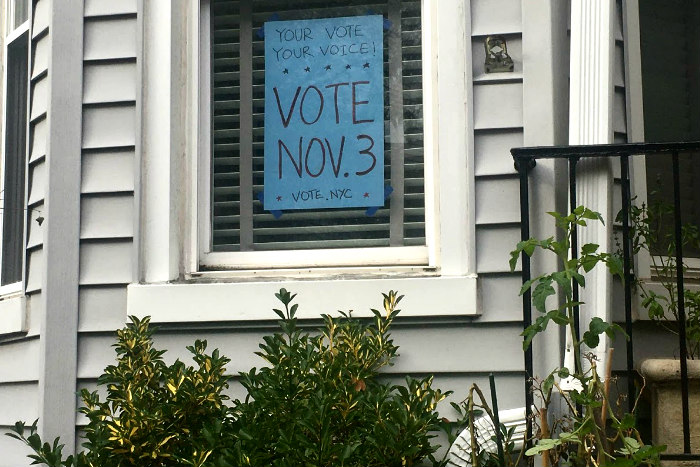 YOUR VOTE
YOUR VOICE!
VOTE
NOV. 3
VOTE.NYC